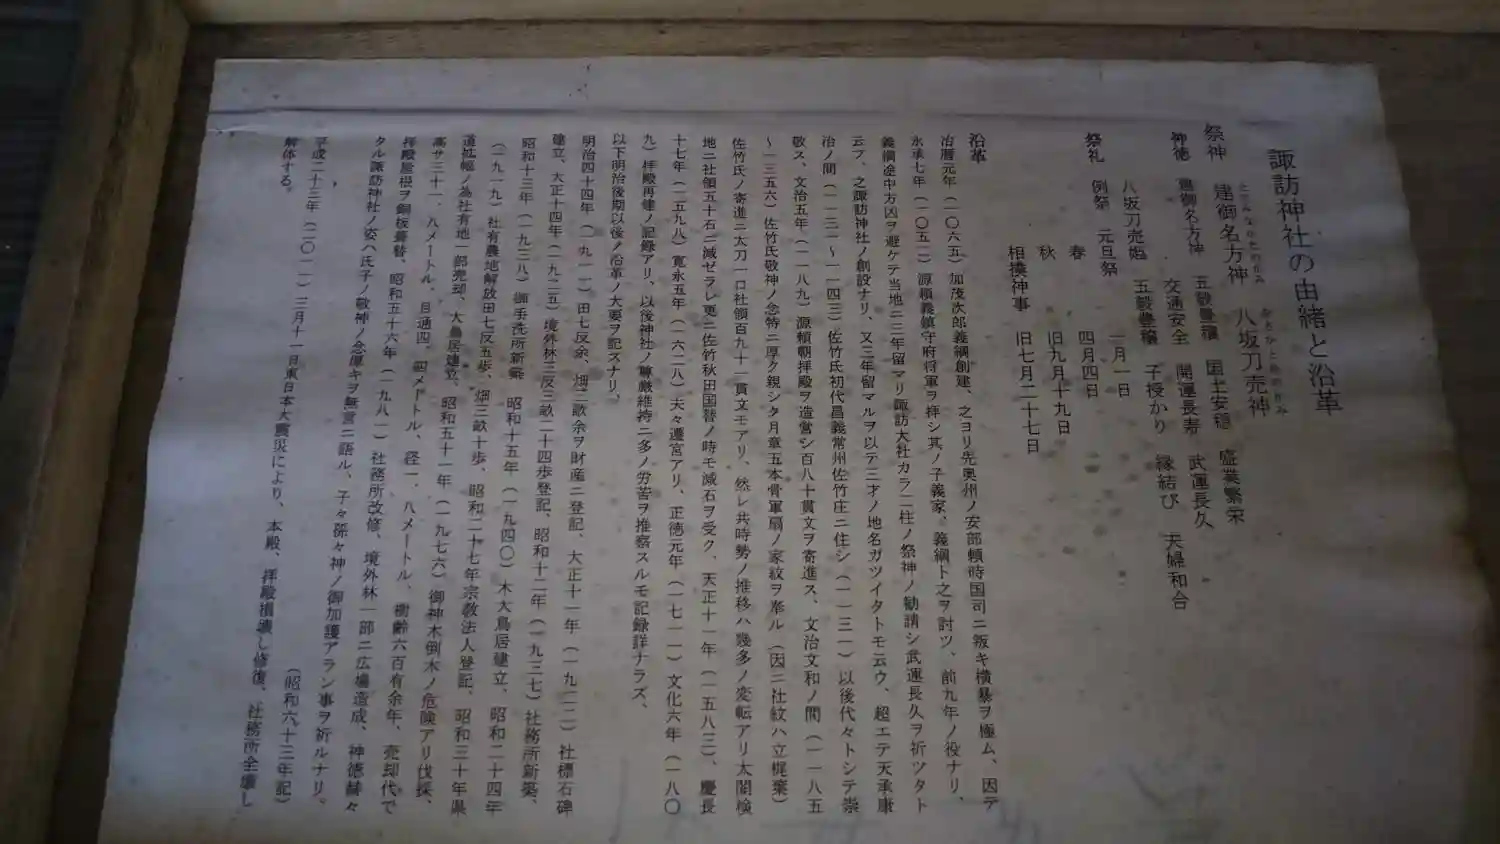 諏訪神社の由緒と沿革
祭神　建御名方神　八坂刀売神
たけみなかたのかみ　やさかとめのかみ
神徳　建御名方神　五穀豊穣　国土安穏　盛業繁栄
交通安全　開運長寿　武運長久
八坂刀売姫　五穀豊穣　子授かり　縁結び　夫婦和合
祭礼　例祭　元旦祭　一月一日
春　四月四日
秋　旧九月十九日
相撲神事　旧七月二十七日
沿革
治暦元年（一〇六五）加茂次郎義綱創建、之ヨリ先奥州ノ安部頼時国司ニ叛キ横暴ヲ極ム、因テ
永承七年（一〇五二）源頼義鎮守府将軍ヲ拝シ其ノ子義家、義綱ト之ヲ討ツ、前九年ノ役ナリ、
義綱途中方凶ヲ避ケテ当地ニ三年留マリ諏訪大社カラ二柱ノ祭神ノ勧請シ武運長久ヲ祈ツタト
云フ、之諏訪神社ノ創設ナリ、又三年留マルヲ以テ三才ノ地名ガツイタトモ云ウ、超エテ天承康
治ノ間（一一三一～一一四三）佐竹氏初代昌義常州佐竹庄ニ住シ（一一三一）以後代々トシテ崇
敬ス、文治五年（一一八九）源頼朝拝殿ヲ造営シ百八十貫文ヲ寄進ス、文治文和ノ間（一一八五
～一三五六）佐竹氏敬神ノ念特ニ厚ク親シタ月章五本骨軍扇ノ家紋ヲ奉ル（因ニ社紋ハ立梶葉）
佐竹氏ノ寄進ニ太刀一口社領百九十一貫文モアリ、然レ共時勢ノ推移ハ幾多ノ変転アリ太閤検
地ニ社領五十石ニ減ゼラレ更ニ佐竹秋田国替ノ時モ減石ヲ受ク、天正十一年（一五八三）、慶長
十七年（一五九八）寛永五年（一六二八）夫々遷宮アリ、正徳元年（一七一一）文化六年（一八〇
九）拝殿再建ノ記録アリ、以後神社ノ尊厳維持ニ多ノ労苦ヲ推察スルモ記録詳ナラズ、
以下明治後期以後ノ沿革ノ大要ヲ記スナリ、
明治四十四年（一九一一）田七反余、畑二畝余ヲ財産ニ登記、大正十一年（一九二二）社標石碑
建立、大正十四年（一九二五）境外林三反三畝二十四歩登記、昭和十二年（一九三七）社務所新築、
昭和十三年（一九三八）御手洗所新築　昭和十五年（一九四〇）木大鳥居建立、昭和二十四年
（一九一九）社有農地解放田七反五歩、畑三畝十歩、昭和二十七年宗教法人登記、昭和三十年県
道拡幅ノ為社有地一部売却、大鳥居建立、昭和五十一年（一九七六）御神木倒木ノ危険アリ伐採、
高サ三十一、八メートル、目通四、四メートル、径一、八メートル、樹齢六百有余年、売却代で
拝殿屋根ヲ銅板葺替、昭和五十六年（一九八一）社務所改修、境外林一部ニ広場造成、神徳赫々
タル諏訪神社ノ姿ハ氏子ノ敬神ノ念厚キヲ無言ニ語ル、子々孫々神ノ御加護アラン事ヲ祈ルナリ。
（昭和六十三年記）
平成二十三年（二〇一一）三月十一日東日本大震災により、本殿、拝殿損壊し修復、社務所全壊し
解体する。